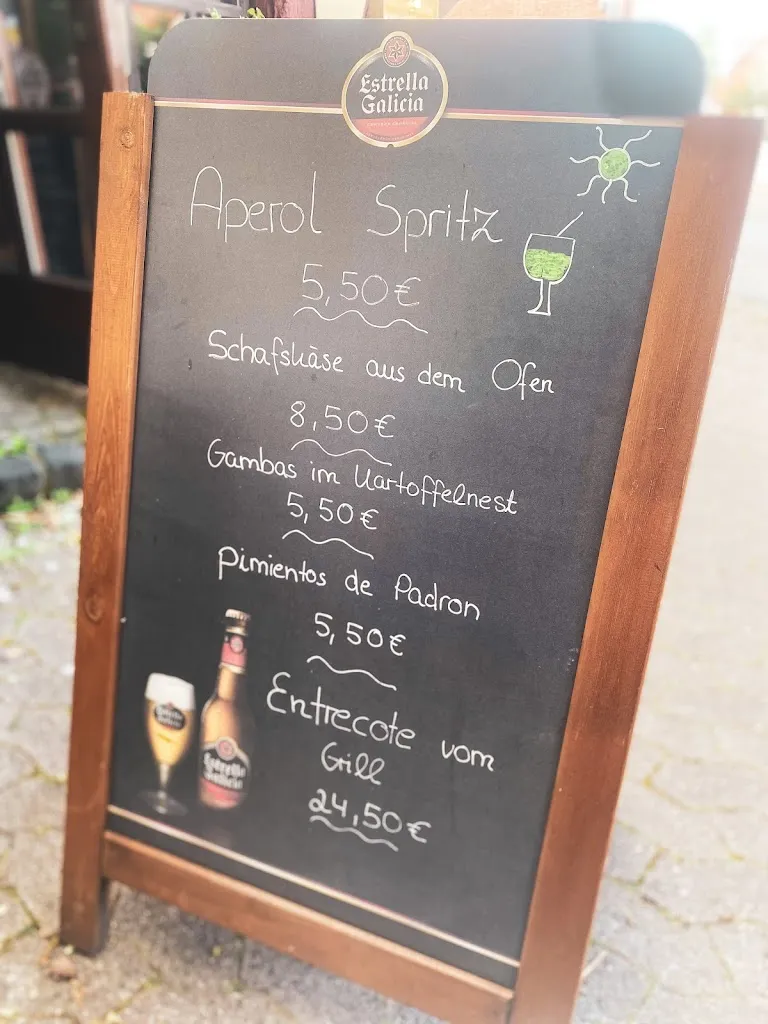 Estrella
Galicia
Aperol Spritz
5,50€
Schafskäse aus dem Ofen
8,50€
Gambas im Kartoffelnest
5,50€
Pimientos de Padron
5,50€
Entrecote vom
Grill
24,50€
Estrella
Galicia